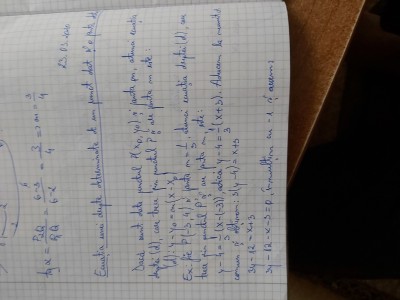 23.03.2020
tg α = P₂Q / P₁Q = 6-3 / 6-2 = 3/4 => m = 3/4
Ecuația unei drepte determinate de un punct dat și o
Dacă sunt date punctul P(x₀, y₀) și panta m, atunci ecuația
dreptei (d), care trece prin punctul P și are panta m este:
(d): y-y₀ = m(x-x₀)
Ex: fie P(-3,4) și panta m = 1/3, atunci ecuația dreptei (d), care
trece prin punctul P și are panta m, este:
y-4 = 1/3 (x-(-3)), adică y-4 = 1/3 (x+3). Aducem la numitor
comun și obținem: 3(y-4) = x+3
3y-12 = x+3
3y-12-x-3 = 0, înmulțim cu -1 și avem: